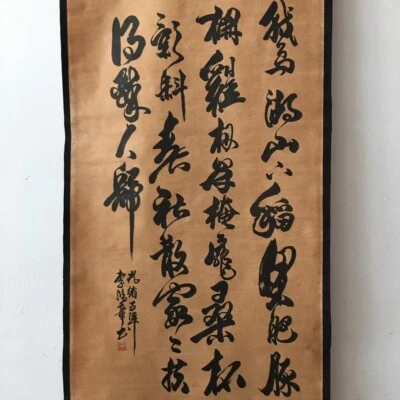 鵞湖山下稻粱肥豚
栅雞栖半掩扉桑柘
影斜春社散家々扶
得醉人歸
光緒年
李鴻章书